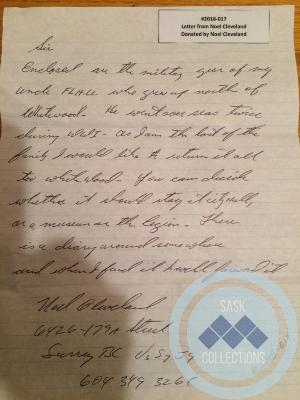 #2018-017
Letter from Noel Cleveland
Donated by Noel Cleveland
Sir
Enclosed are the military gear of my
uncle who grew up north of
Whitewood. He went over seas twice
during WW1 - As I am the last of the
family I would like to return it all
too whitewood. You can decide
whether it should stay at city hall,
or a museum or the legion. There
is a diary around somewhere
and when I find it I will forward it
Noel Cleveland
6426-179A Street
Surrey BC
604 349 3266
SASK
COLLECTIONS